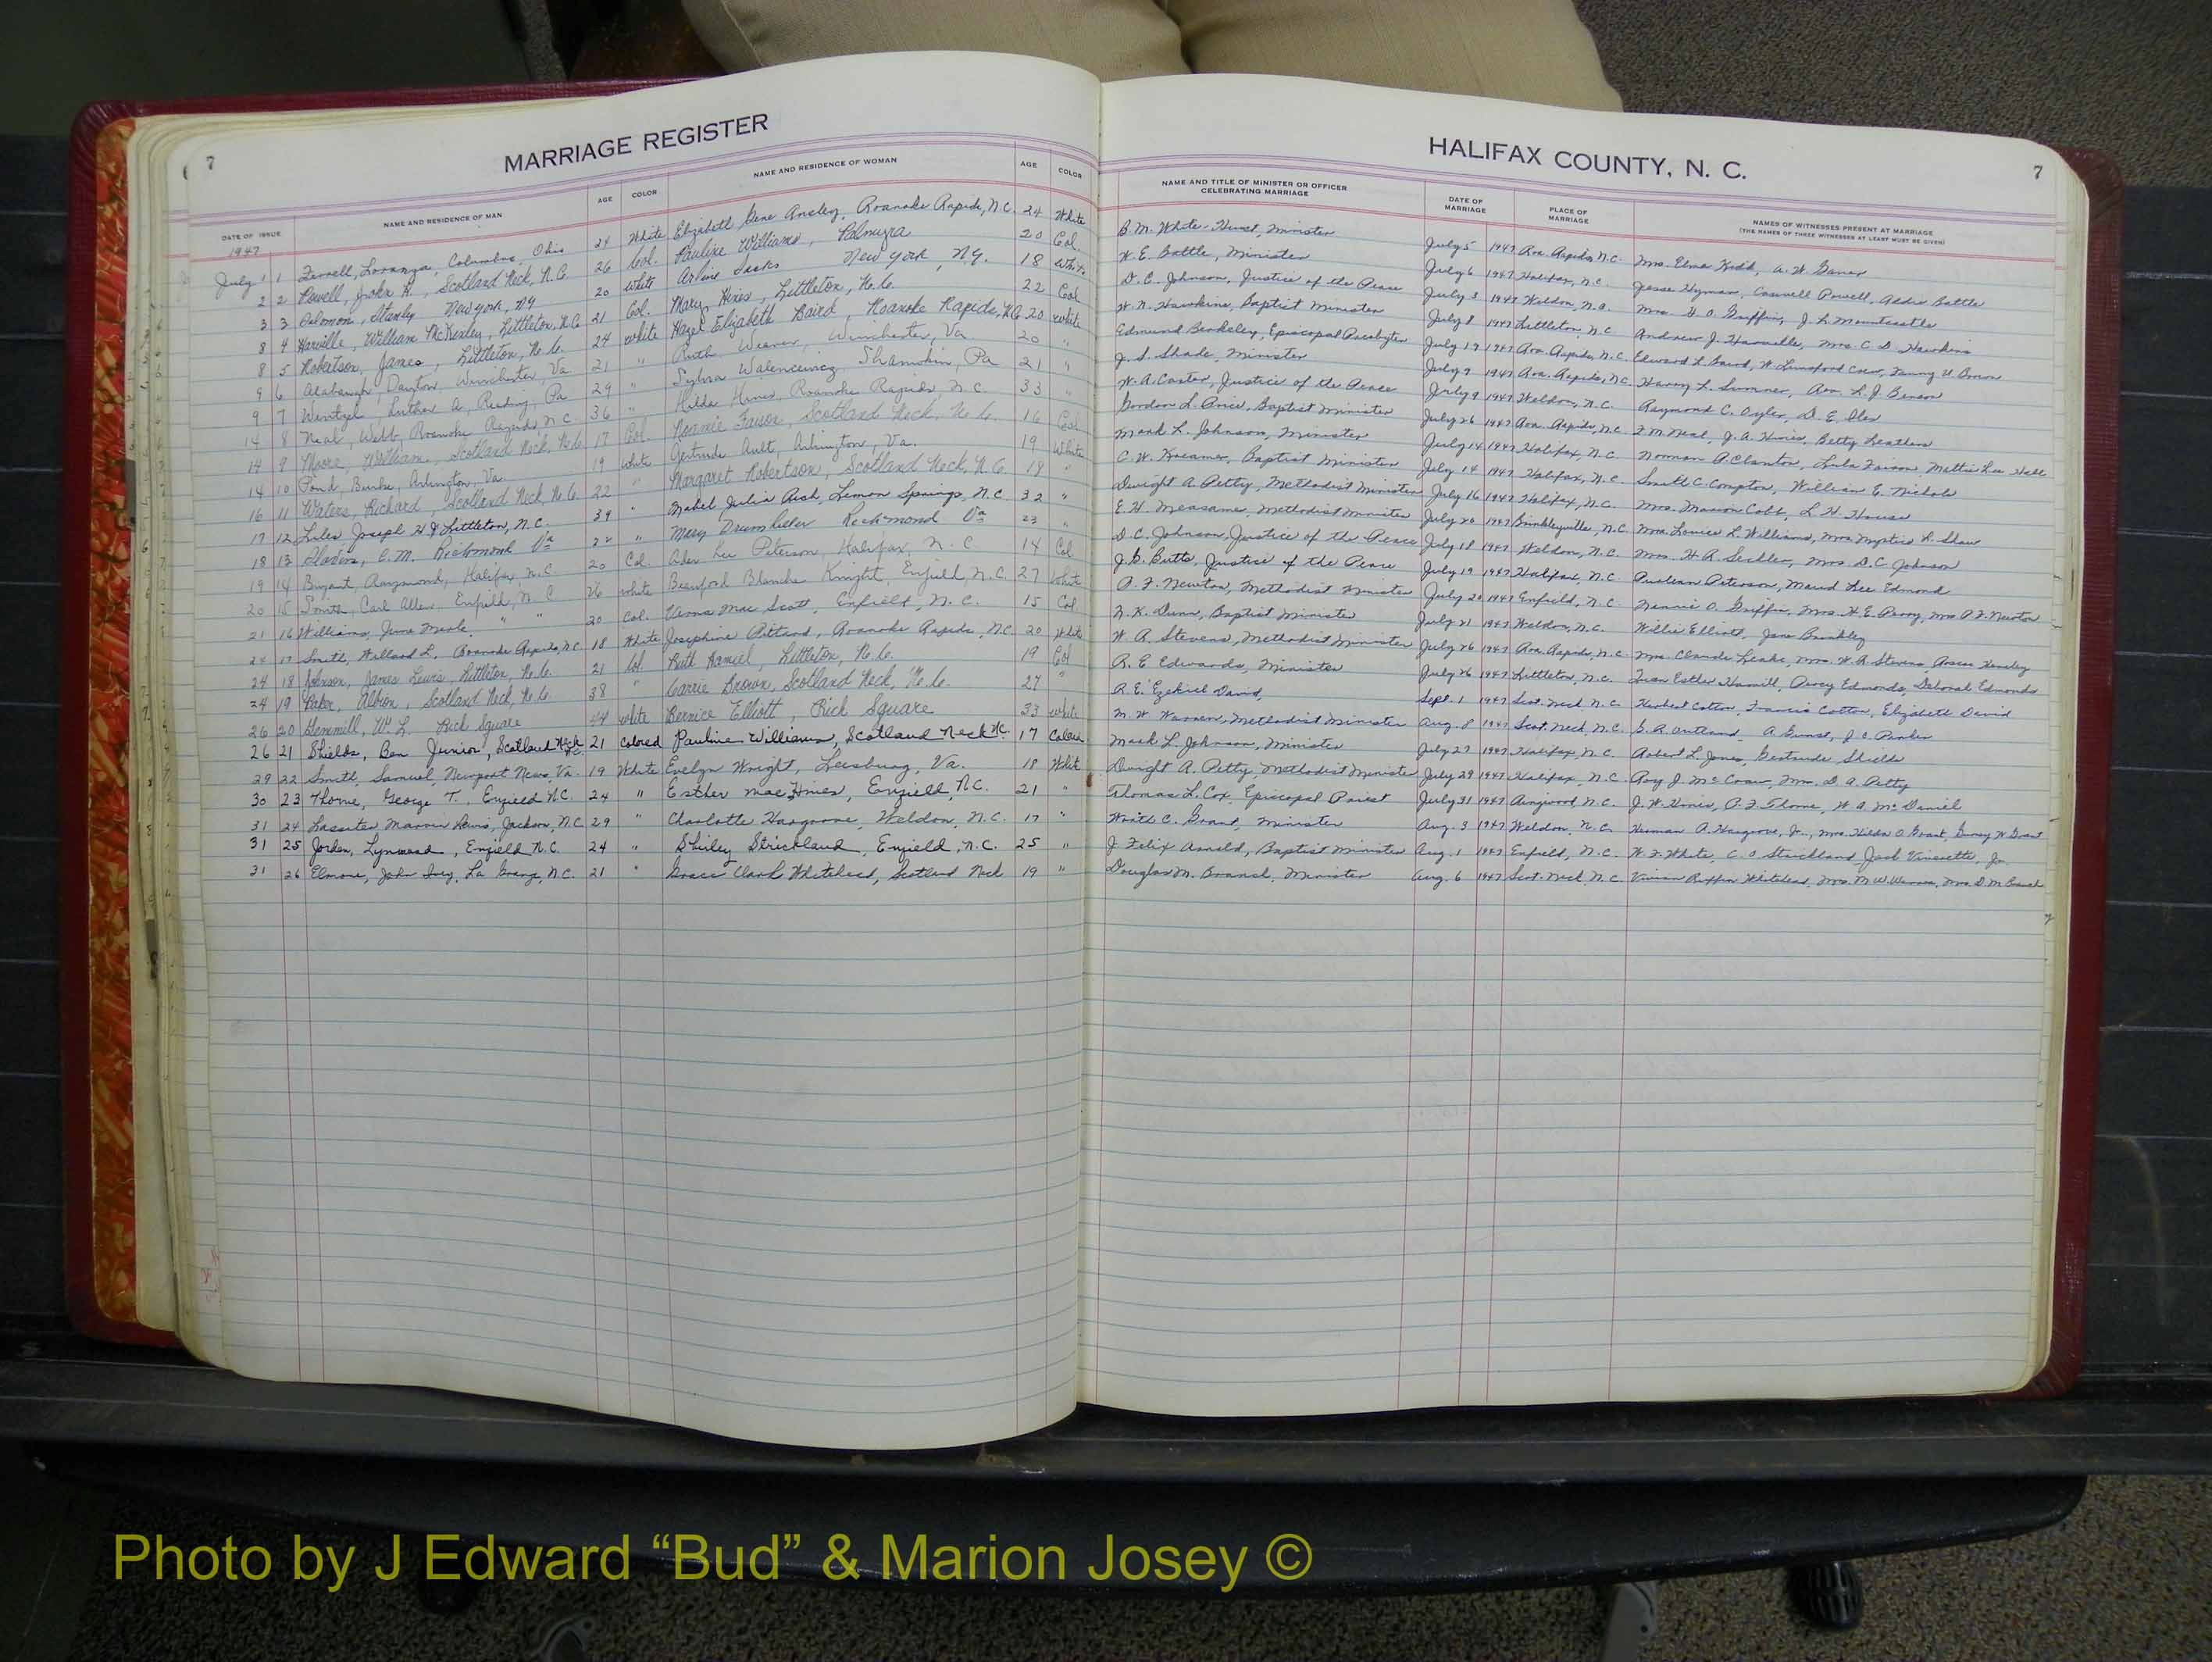 7 MARRIAGE REGISTER
HALIFAX COUNTY, N. C. 7
DATE OF ISSUE NAME AND RESIDENCE OF MAN AGE COLOR NAME AND RESIDENCE OF WOMAN AGE COLOR
NAME AND TITLE OF MINISTER OR OFFICER CELEBRATING MARRIAGE DATE OF MARRIAGE PLACE OF MARRIAGE NAMES OF WITNESSES PRESENT AT MARRIAGE
(THE NAMES OF THREE WITNESSES AT LEAST MUST BE GIVEN)
1947
July 1 1 Ferrell, Loranza, Columbus, Ohio 24 White Elizabeth Gene Ansley, Roanoke Rapids, N.C. 24 White B. M. White-Hurst, Minister July 5 1947 Roa. Rapids, N.C. Mrs. Elma Kidd, A. W.
2 2 Powell, John R., Scotland Neck, N.C. 26 Col. Pauline Williams, Palmyra 20 Col. W. E. Battle, Minister July 6 1947 Halifax, N.C. Jesse Hyman, Caswell Powell, Addie Battle
3 3 Solomon, Stanly New York, NY 20 White Arline New York, N.Y. 18 White D. C. Johnson, Justice of the Peace July 3 1947 Weldon, N.C. Mrs. D O Griffin, J. L. Mountcastle
8 4 Harville, William McKinley, Littleton, N.C. 21 Col. Mary Hines, Littleton, N.C. 22 Col W. N. Hawkins, Baptist Minister July 8 1947 Littleton, N.C. Andrew J. Mrs. C. D. Hawkins
8 5 Robertson, James, Littleton, N.C. 24 White Hazel Elizabeth Baird, Roanoke Rapids, N.C. 20 White Edmund Berkeley, Episcopal Presbyter July 19 1947 Roa. Rapids, N.C. Edward L. Baird, W. Lunsford Crew, Fanny U. Brown
9 6 Dayton, Winchester, Va 21 " Ruth Weaver, Winchester, Va 20 " J. S. Shade, Minister July 9 1947 Roa. Rapids, N.C. Harry L. Rev. L. J. Benson
9 7 Wentzel, Luther A., Reading, Pa 29 " Sylvia Shamokin, Pa 21 " W. A. Carter, Justice of the Peace July 9 1947 Weldon, N.C. Raymond C. Oyler, D. E. Iles
14 8 Neal, Webb, Roanoke Rapids, N.C. 36 " Hilda Hines Roanoke Rapids, N.C. 33 " Gordon L. Price, Baptist Minister July 26 1947 Roa. Rapids, N.C. F M Neal, J. A. Hines, Betty
14 9 Moore, William, Scotland Neck, N.C. 17 Col. Nonnie Faison, Scotland Neck, N.C. 16 Col Mark L. Johnson, Minister July 14 1947 Halifax, N.C. Norman A. Clanton, Lula Faison Mettie Lee Hall
14 10 Pond, Burke, Arlington, Va. 19 White Gertrude Ault, Arlington, Va. 19 White C. W. Kreamer, Baptist Minister July 14 1947 Halifax, N.C. Smith C. Compton, William E. Nichols
16 11 Waters, Richard, Scotland Neck, N.C. 22 " Margaret Robertson, Scotland Neck, N.C. 18 " Dwight A. Petty, Methodist Minister July 16 1947 Halifax, N.C. Mrs. Marion Cobb, L. H. House
17 12 Liles Joseph H Jr Littleton, N.C. 39 " Mabel Julia Lemon Springs, N.C 32 " E. H. Measamer, Methodist Minister July 20 1947 Brinkleyville, N.C. Mrs. Louise L. Williams, Mrs. Myrtie L. Shaw
18 13 C. M. Richmond Va 22 " Mary Drumheller Richmond Va 23 " D. C. Johnson, Justice of the Peace July 18 1947 Weldon, N.C. Mrs. H R Mrs. D. C. Johnson
19 14 Bryant, Raymond, Halifax, N.C 20 Col. Lee Peterson, Halifax, N.C 14 Col J. C. Butts, Justice of the Peace July 19 1947 Halifax, N.C. Peterson, Maud Lee Edmond
20 15 Smith, Carl Allen Enfield, N.C 26 White Blanche Knight, Enfield, N.C. 27 White P. F. Newton, Methodist Minister July 20 1947 Enfield, N.C. Nannie O. Griffin, Mrs. H. E. Perry, Mrs P F Newton
21 16 Williams, June " " 20 Col. Mae Scott, Enfield, N.C. 15 Col N. K. Dunn, Baptist Minister July 21 1947 Weldon, N.C. Willie Elliott, Jane Brinkley
24 17 Smith, Willard L. Roanoke Rapids, N.C. 18 White Josephine Pittard, Roanoke Rapids, N.C. 20 White W. A. Stevens, Methodist Minister July 26 1947 Roa. Rapids, N.C. Mrs. Claude Leake, Mrs. W. A. Stevens
24 18 Johnson, James Lewis, Littleton, N.C. 21 Col. Ruth Littleton, N.C. 19 Col R. E. Edwards, Minister July 26 1947 Littleton, N.C. Esther Percy Edmonds, Deborah Edmonds
24 19 Baker, Albion, Scotland Neck, N.C. 38 " Carrie Brown, Scotland Neck, N.C. 27 " R. E. Ezekiel David, Sept. 1 1947 Scot. Neck N.C. Herbert Cotton, Francis Cotton, Elizabeth David
26 20 Gemmill, Wm L. Rich Square 44 White Bernice Elliott, Rich Square 33 White M. W. Warren, Methodist Minister Aug. 8 1947 Scot. Neck N.C. G. R Outland J. C. Parker
26 21 Shields, Ben Junior, Scotland Neck NC 21 Colored Pauline Williams, Scotland Neck NC. 17 Colored Mark L. Johnson, Minister July 27 1947 Halifax, N.C. Robert L. Jones, Gertrude Shields
29 22 Smith, Samuel, Newport News, Va. 19 White Evelyn Wright, Leesburg, Va. 18 Whit Dwight A. Petty, Methodist Minister July 29 1947 Halifax, N.C. Roy J. McCraw, Mrs. D. A. Petty
30 23 Thorne, George T., Enfield N.C. 24 " Esther Mae Hines, Enfield, N.C. 21 " Thomas L. Cox, Episcopal Priest July 31 1947 Airlie N.C. J. W. P. F. Thorne, W. A. McDaniel
31 24 Lassiter Marvin Lewis, Jackson, N.C. 29 " Charlotte Hargrove, Weldon, N.C. 17 " C. Grant, Minister Aug. 3 1947 Weldon, N.C. Herman A. Hargrove, Jr., Mrs. Hilda O. Grant, W Grant
31 25 Jordan, Lynwood, Enfield N.C. 24 " Shirley Strickland, Enfield, N.C. 25 " J. Felix Arnold, Baptist Minister Aug. 1 1947 Enfield, N.C. W. F. White, C. O Strickland, Jack Vinerette, Jr.
31 26 Elmore, John Ivey, La Grange, N.C. 21 " Grace Clark Whitehead, Scotland Neck 19 " Douglas M. Branch, Minister Aug. 6 1947 Scot. Neck, N.C. Vivian Ruffin Whitehead, Mrs. M. W. Warren, Mrs. D M Branch
Photo by J Edward “Bud” & Marion Josey ©